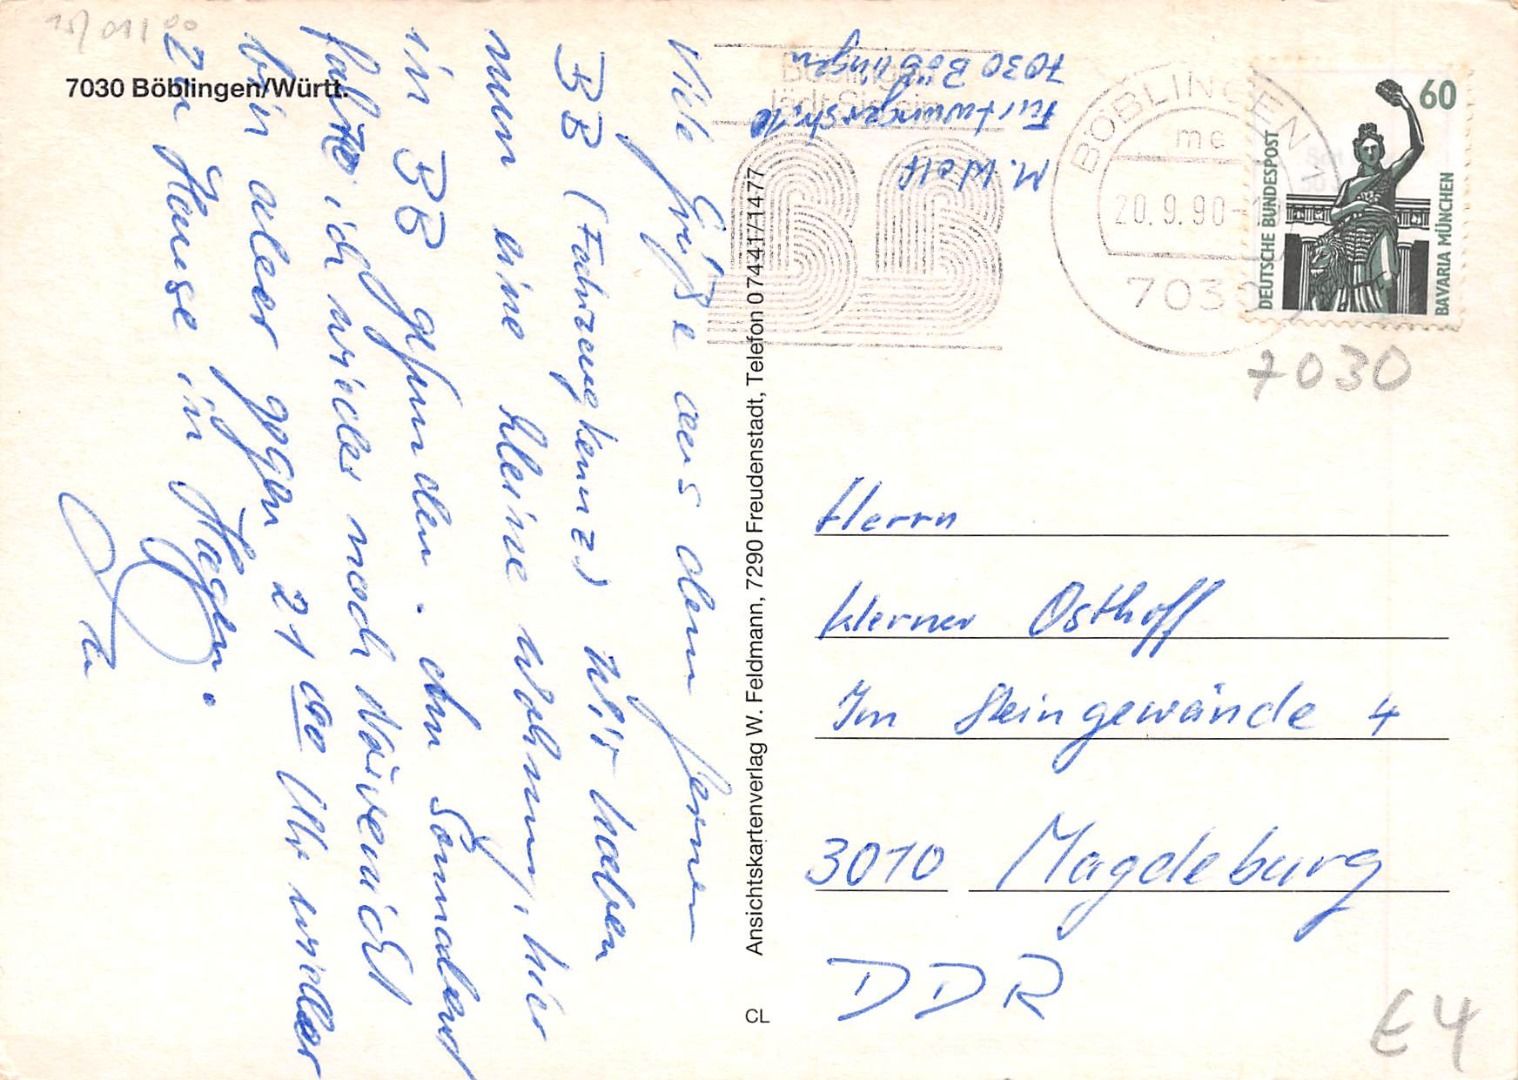 15/01/00
7030 Böblingen/Württ.
Viele Grüße aus dem fernen
BB (Fahrzeugkennz.) Wir haben
nun eine kleine Wohnung, hier
in BB gefunden. Am Sonnabend
fahre ich wieder nach
bin aber gegen 21 00 Uhr wieder
zu Hause in Hagen.
Ansichtskartenverlag W. Feldmann, 7290 Freudenstadt, Telefon 07441/1477
CL
M. Wolf
Furtwängerstr. 10
7030 Böblingen
Böblingen
lädt Sie ein
BB
BÖBLINGEN 1
mc
20.9.90-1
7030
60
DEUTSCHE BUNDESPOST
BAVARIA MÜNCHEN
7030
Herrn
Werner Osthoff
Im Steingewände 4
3010 Magdeburg
DDR
E4